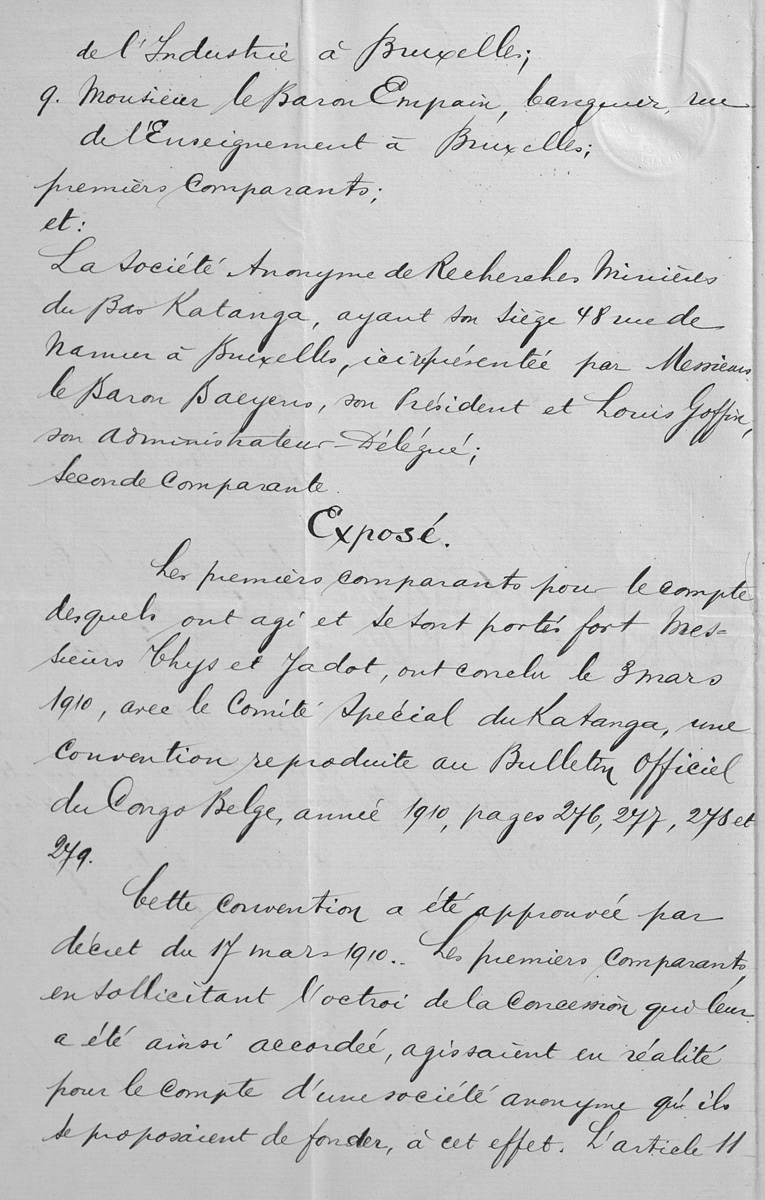 de l'Industrie à Bruxelles;
9. Monsieur le Baron Empain, banquier, rue
de l'Enseignement à Bruxelles;
premiers comparants;
et:
La Société Anonyme de Recherches Minières
du Bas Katanga, ayant son siège 48 rue de
Namur à Bruxelles, ici représentée par Messieurs
le Baron Baeyens, son Président et Louis Goffin,
son Administrateur-Délégué;
Seconde Comparante.
Exposé.
Les premiers comparants pour le compte
desquels ont agi et se sont portés fort Mes-
sieurs Thys et Jadot, ont conclu le 3 mars
1910, avec le Comité Spécial du Katanga, une
convention reproduite au Bulletin Officiel
du Congo Belge, année 1910, pages 276, 277, 278 et
279.
Cette convention a été approuvée par
décret du 17 mars 1910.. Les premiers comparants,
en sollicitant l'octroi de la Concession qui leur
a été ainsi accordée, agissaient en réalité
pour le compte d'une société anonyme qu'ils
se proposaient de fonder, à cet effet. L'article 11